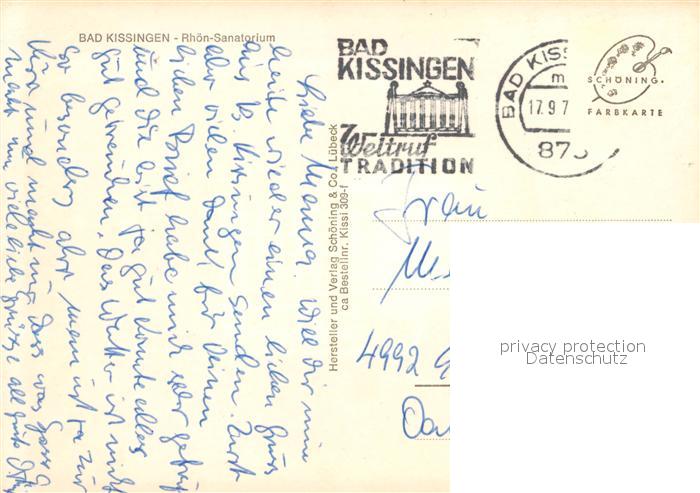 BAD KISSINGEN - Rhön-Sanatorium
BAD
KISSINGEN
Weltruf
TRADITION
BAD KISS
m
17.9.7
873
SCHÖNING.
FARBKARTE
Hersteller und Verlag Schöning & Co., Lübeck
ca Bestellnr. Kissi 309-f
Liebe Mama! Will Dir nun
heute wieder einen lieben Gruss
aus B. Kissingen senden. Zuerst
aber vielen Dank für Deinen
lieben Brief habe mich sehr gefreut
und Du bist ja gut
gut Das Wetter ist nicht
so besonders aber man ist ja zur
Kur und
nun viele liebe Grüsse alles Gute
Frau
4992
privacy protection
Datenschutz